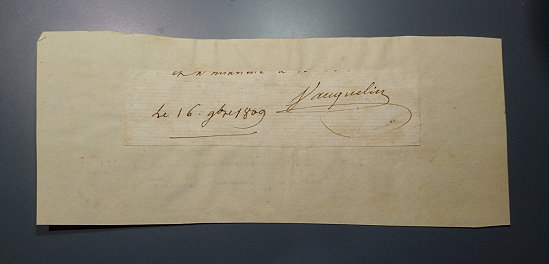 Vauquelin
Le 16 9bre 1809